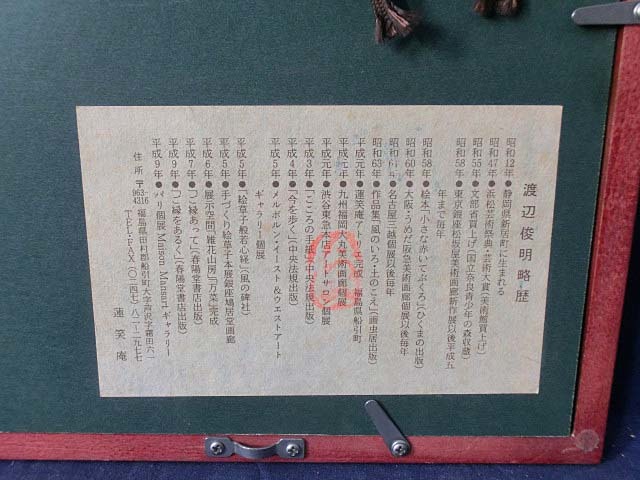 渡辺俊明略歴
昭和12年●静岡県新居町に生まれる
昭和47年●浜松芸術祭典・芸術大賞(美術館買上げ)
昭和55年●文部省買上げ(国立奈良青少年の森収蔵)
昭和58年●東京銀座松坂屋美術画廊新作展以後平成五
年まで毎年
昭和58年●絵本「小さな赤いてぶくろ」(ひくまの出版)
昭和60年●大阪・うめだ阪急美術画廊個展以後毎年
昭和61年●名古屋三越個展以後毎年
昭和63年●作品集「風のいろ・土のこえ」(画虫居出版)
平成元年●蓮笑庵アトリエ完成 福島県船引町
平成元年●九州福岡大丸美術画廊個展
平成元年●渋谷東急本店アートサロン個展
平成3年●「こころの手紙」(中央法規出版)
平成4年●「今を歩く」(中央法規出版)
平成5年●メルボルン・イースト&ウエストアート
ギャラリー個展
平成5年●「絵草子般若心経」(風の碑社)
平成5年●手づくり絵草子本展銀座鳩居堂画廊
平成6年●展示空間「雑花山房」「万菜」完成
平成7年●「ご縁あって」(春陽堂書店出版)
平成9年●「ご縁をあるく」(春陽堂書店出版)
平成9年●パリ個展 Manson Mansartギャラリー
住所 〒963-4316 福島県田村郡船引町大字芦沢字霜田六一
TEL・FAX(〇二四七)八二ー二九七七
蓮笑庵